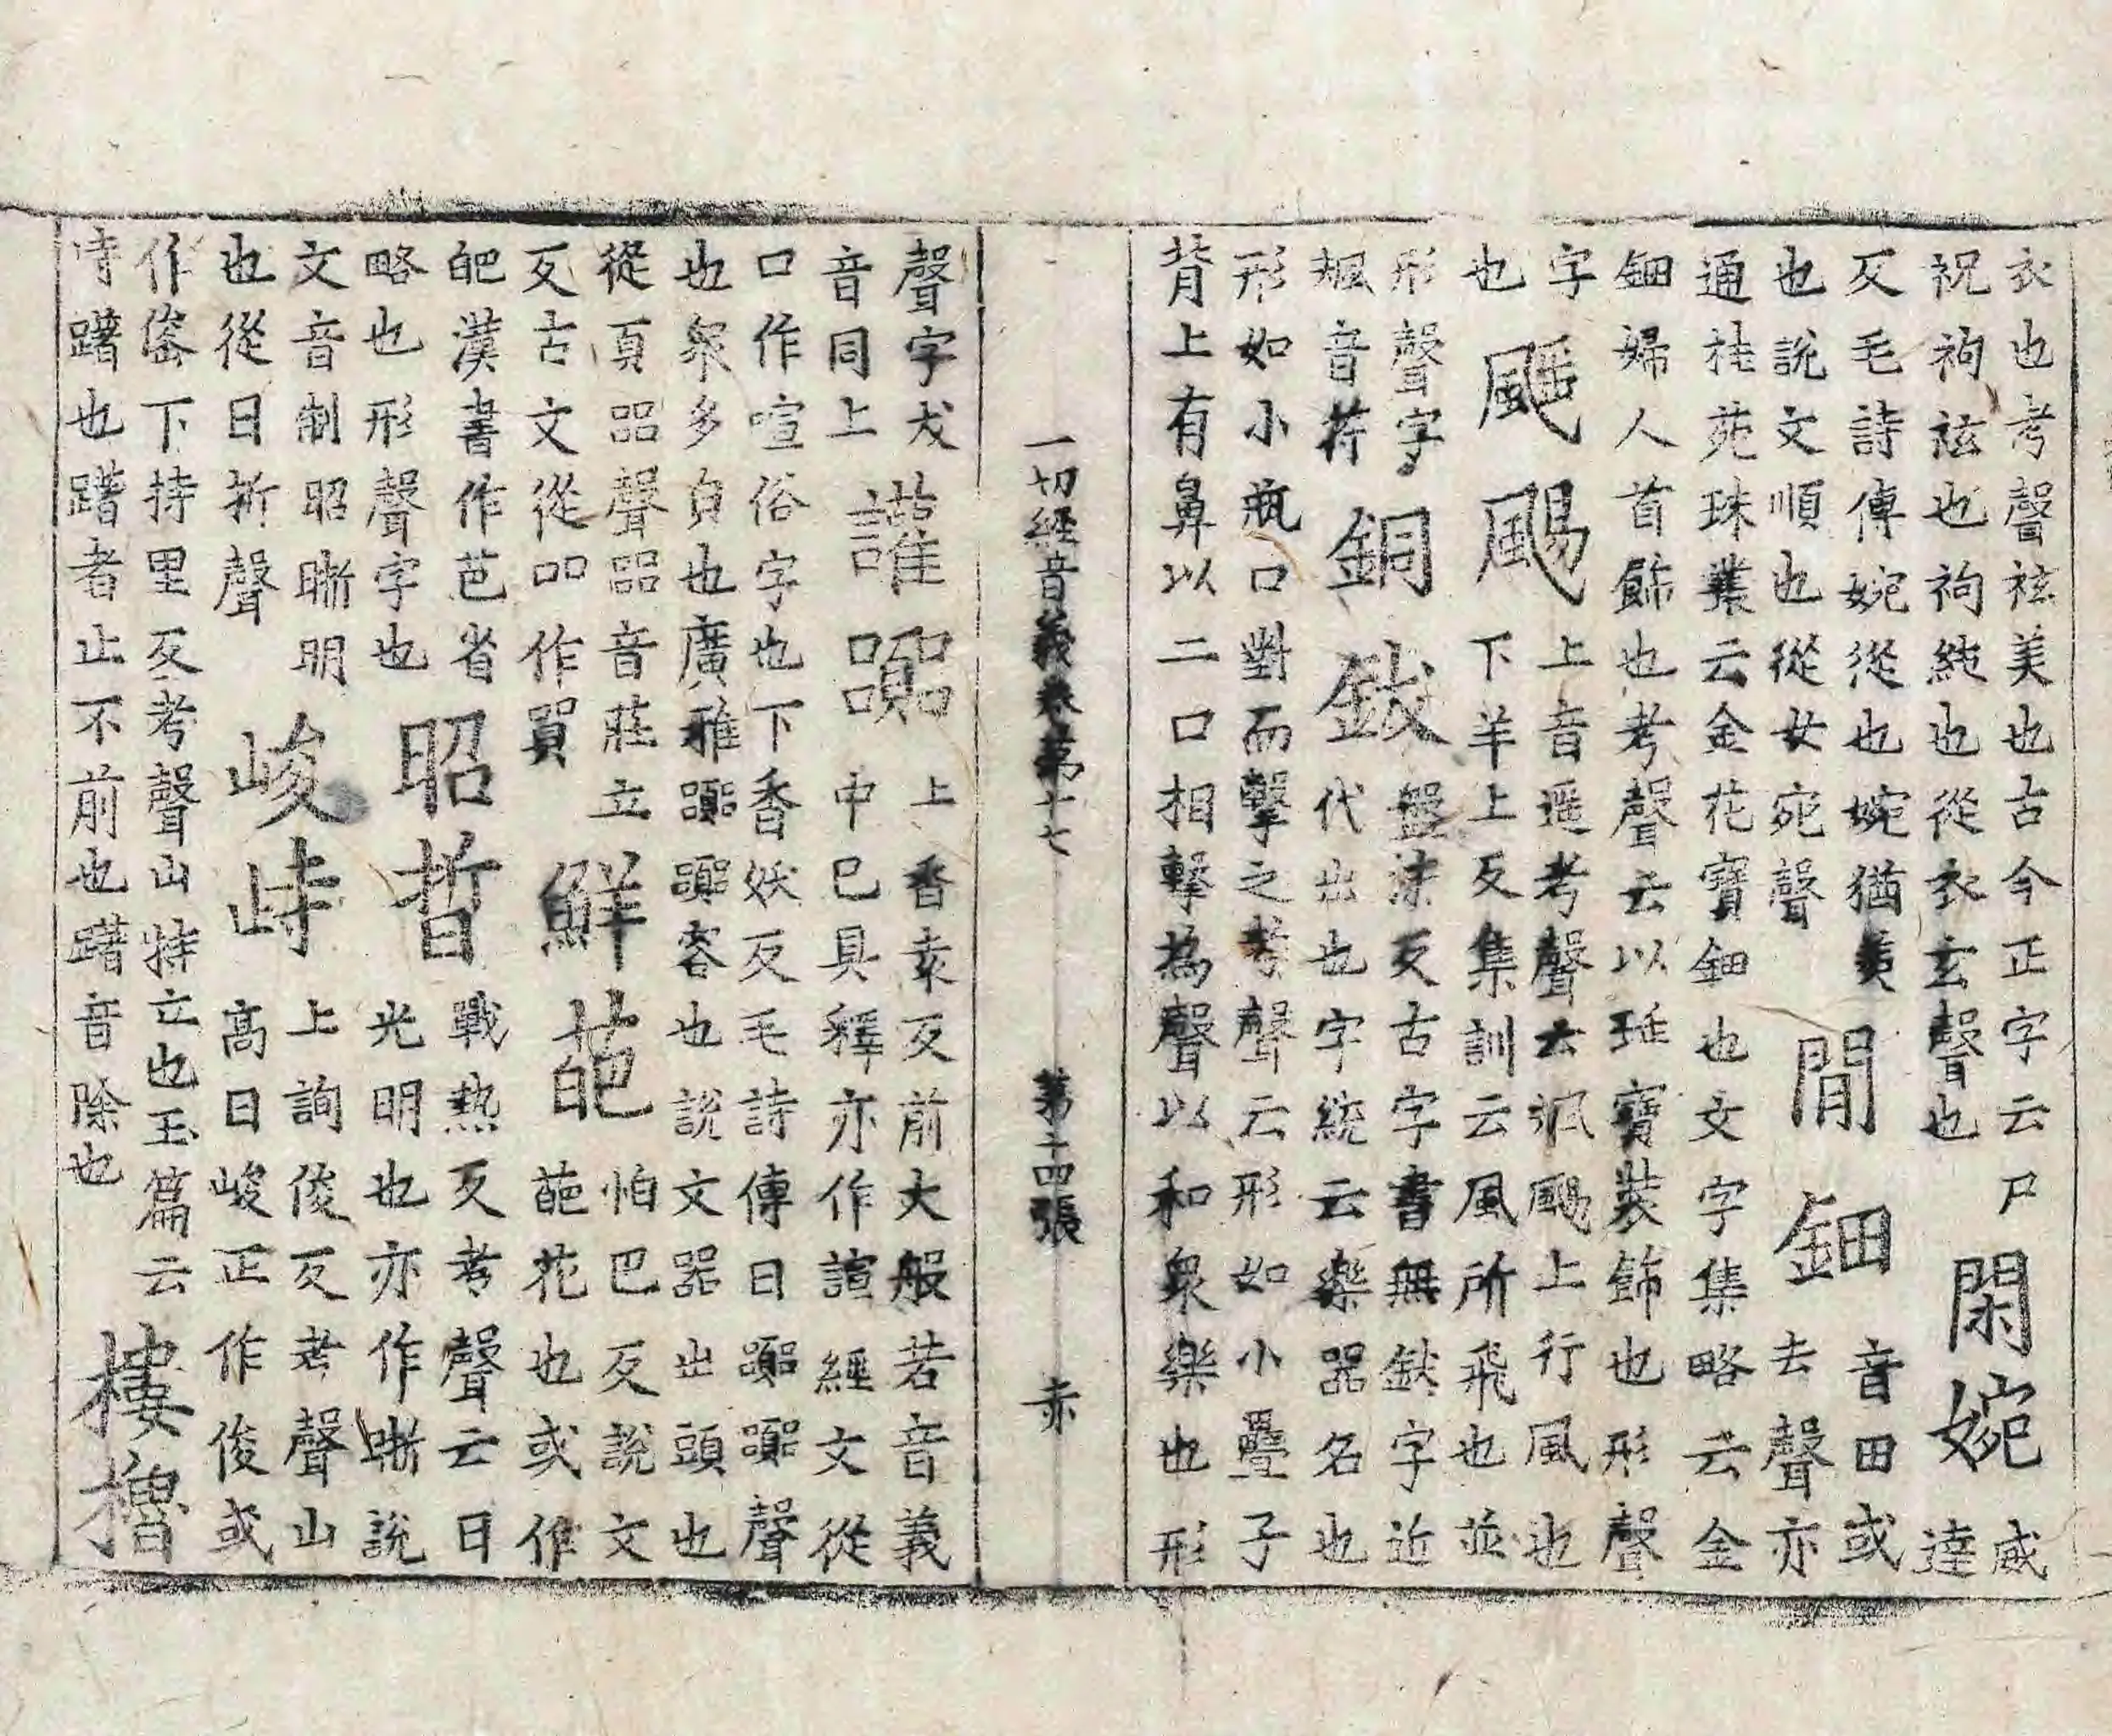 衣也考聲袨美也古今正字云尸
祝袀袨也袀純也從衣玄聲也
閑婉
威
達
反毛詩傳婉從也婉猶羙
也說文順也從女宛聲
閒鈿
音田或
去聲亦
通桂苑珠叢云金花寶鈿也文字集略云金
鈿婦人首飾也考聲云以珤寶裝飾也形聲
字
也
颻颺
上音遥考聲云颻颺上行風也
下羊上反集訓云風所飛也並
形聲字
颻音苻
銅鈸
盤沫反古字書無鈸字近
代出也字統云樂器名也
形如小瓶口對而擊之考聲云形如小疊子
背上有鼻以二口相擊為聲以和衆樂也形
一切經音義卷第十七 第二四張 赤
聲字犮
音同上
讙嚻
上香袁反前大般若音義
中已具釋亦作諠經文從
口作喧俗字也下香妖反毛詩傳曰嚻嚻聲
也衆多皃也廣雅嚻嚻容也說文器出頭也
從頁㗊聲㗊音莊立
反古文從吅作
鮮葩
怕巴反說文
葩花也或作
皅漢書作芭省
略也形聲字也
昭晢
戰熱反考聲云日
光明也亦作晣說
文音制昭晣明
也從日折聲
峻峙
上詢俊反考聲山
高曰峻正作俊或
作下持里反考聲山特立也玉篇云
峙躇也躇者止不前也躇音除也
樓櫓